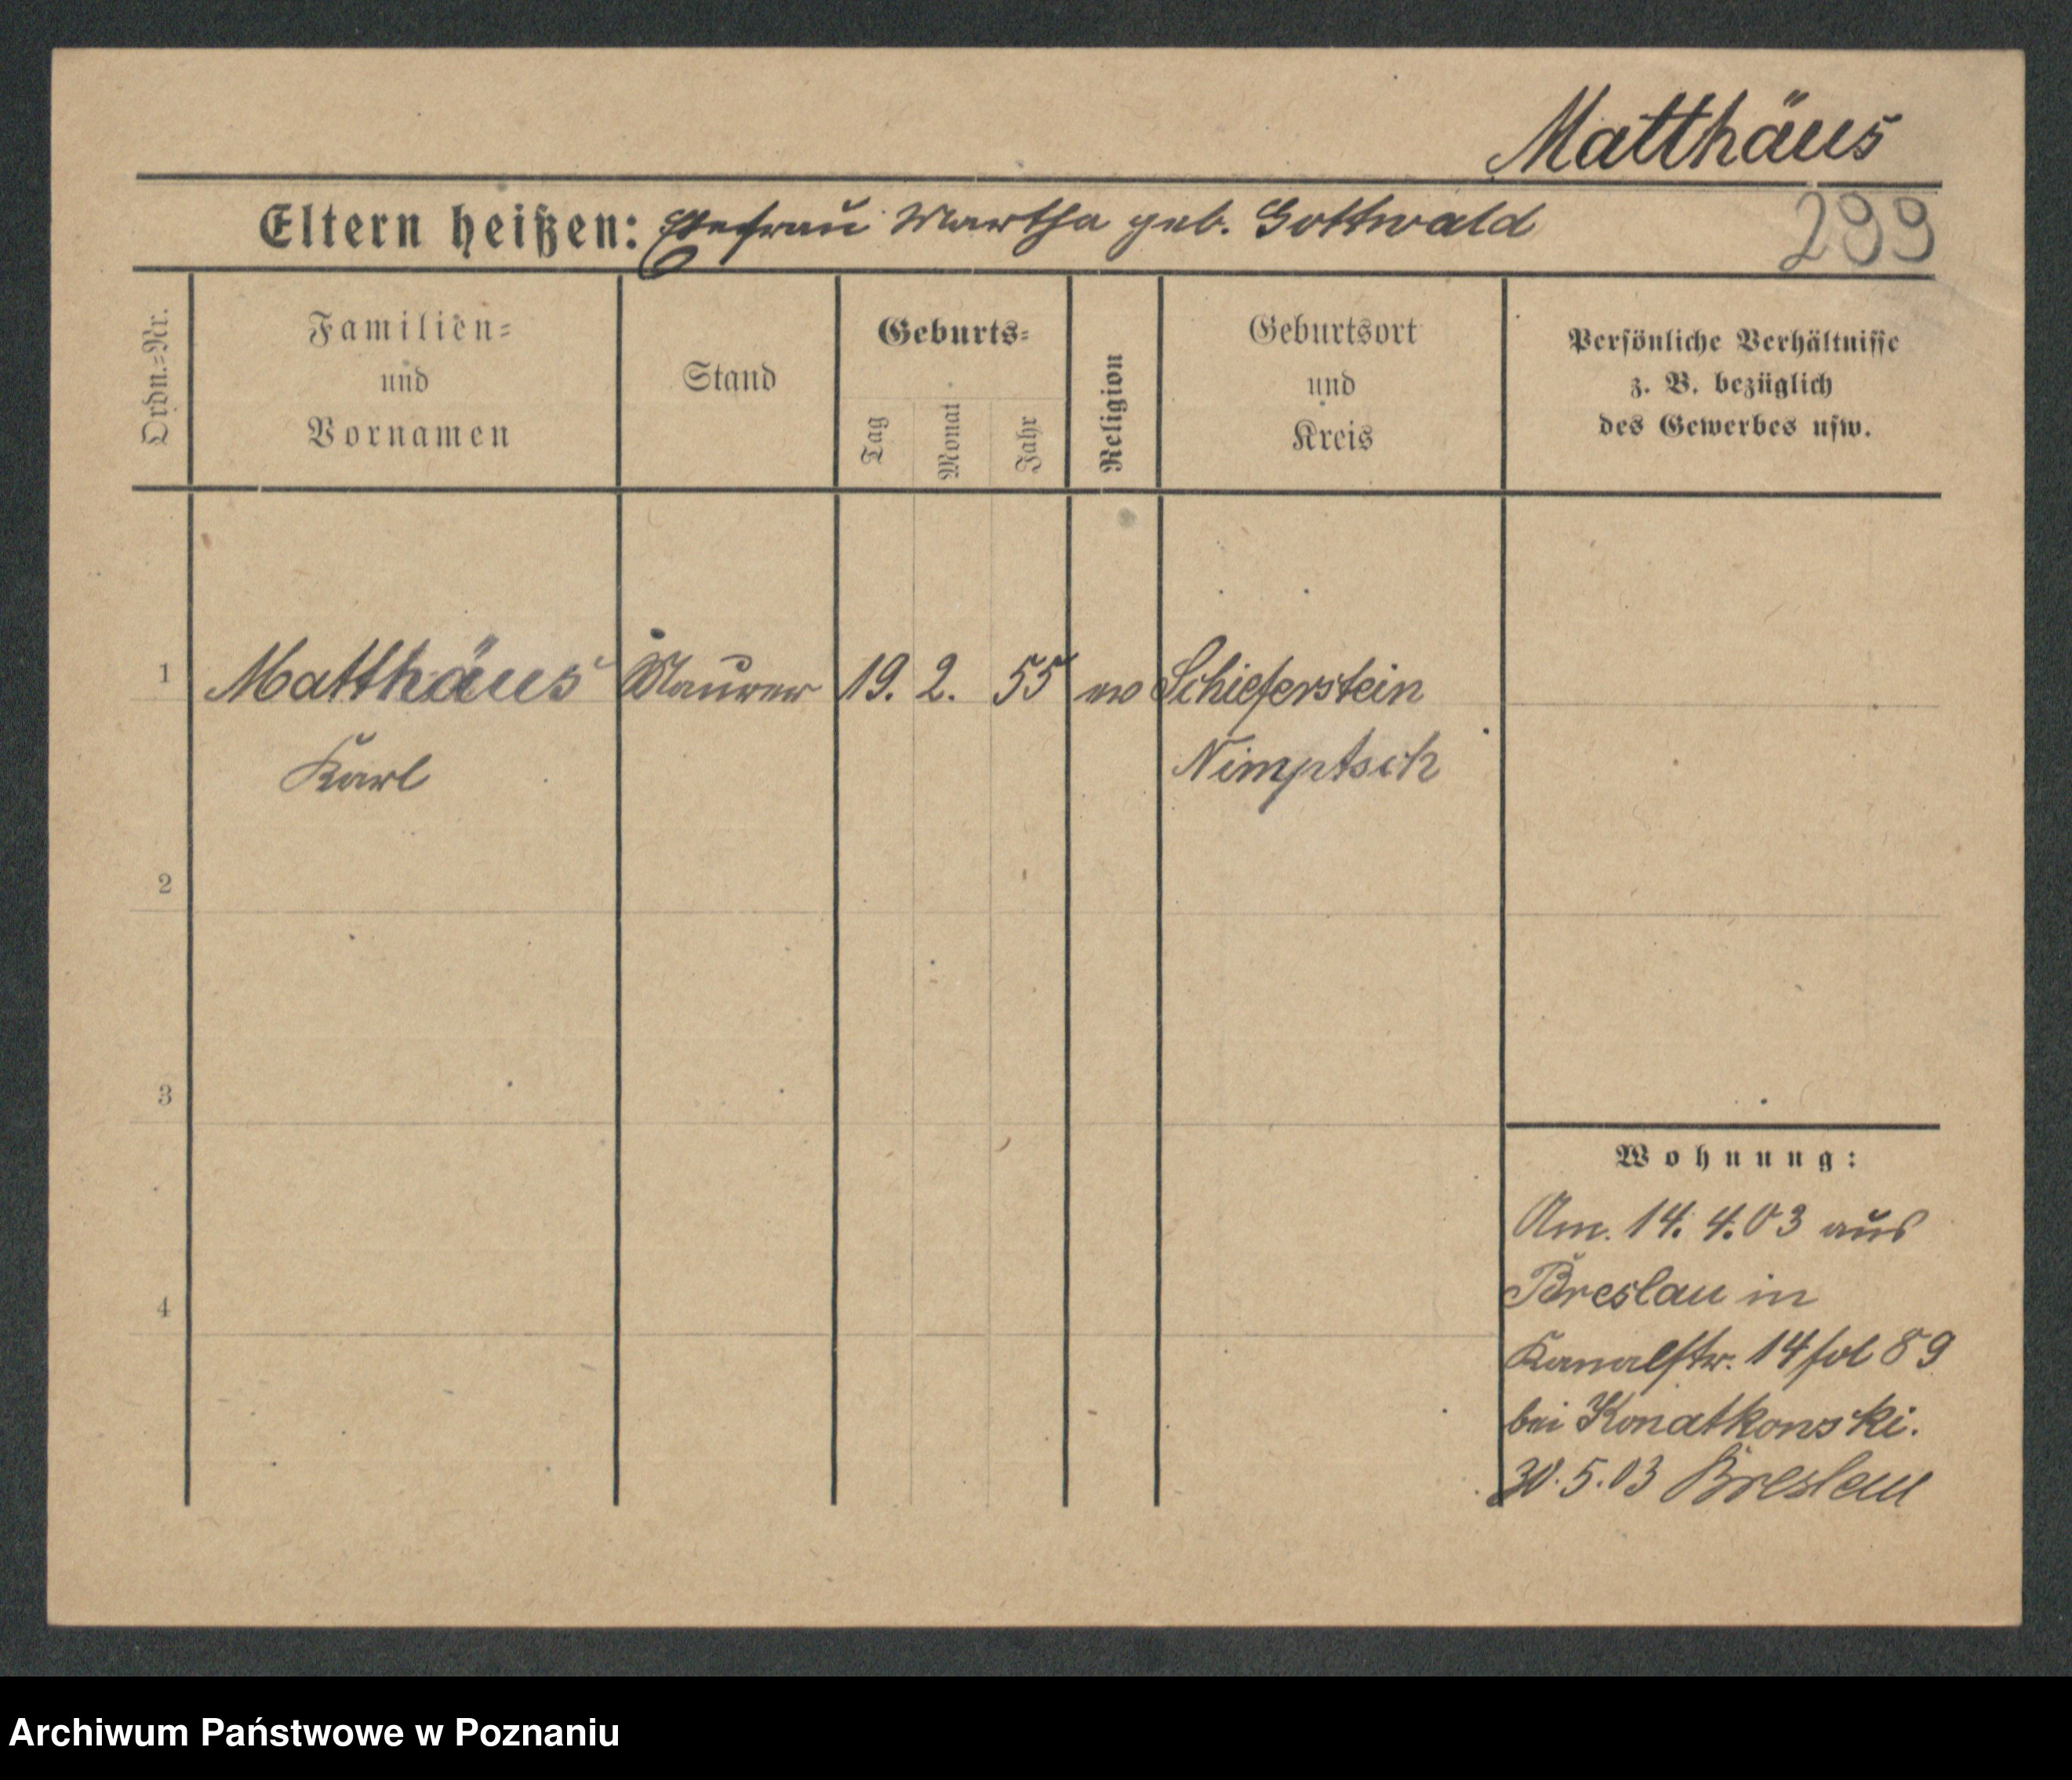 Matthäus
Eltern heißen: Ehefrau Martha geb. Gottwald
299
Ordn.=Nr.
Familien=
und
Vornamen
Stand
Geburts=
Tag
Monat
Jahr
Religion
Geburtsort
und
Kreis
Persönliche Verhältnisse
z. B. bezüglich
des Gewerbes usw.
1 Matthäus Maurer 19. 2. 55 ev Schieferstein
Karl Nimptsch
2
3
4
Wohnung:
Am. 14. 4. 03 aus
Breslau in
Kanalstr. 14 fol 89
bei Konatkowski.
30. 5. 03 Breslau
Archiwum Państwowe w Poznaniu